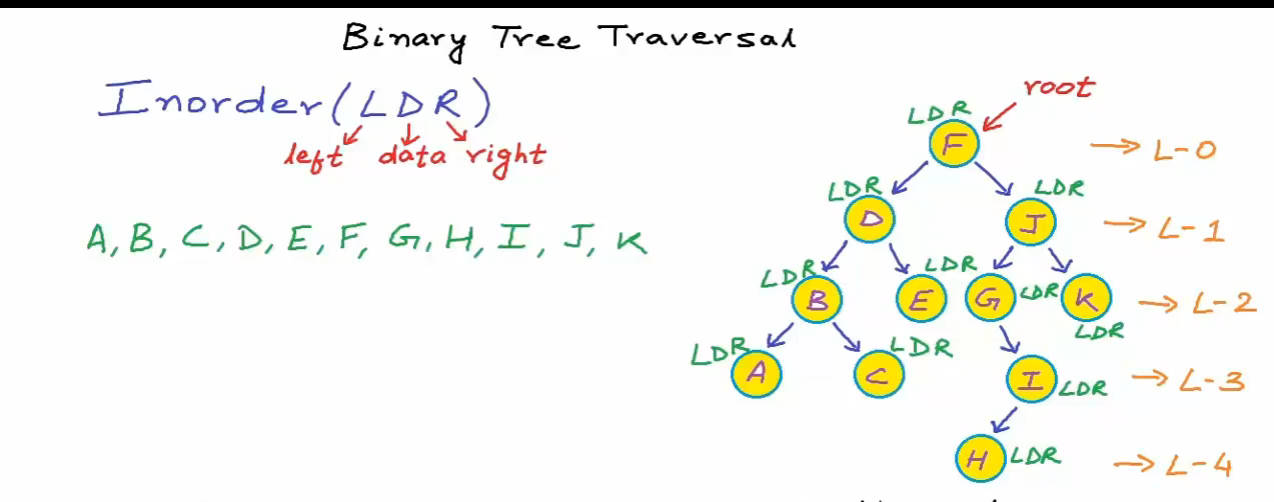 Binary Tree Traversal
Inorder (LDR)
left data right
A, B, C, D, E, F, G, H, I, J, K
root
LDR
F → L-0
LDR LDR
D J → L-1
LDR LDR
B E G LDR K → L-2
LDR
LDR LDR
A C I LDR → L-3
H LDR → L-4